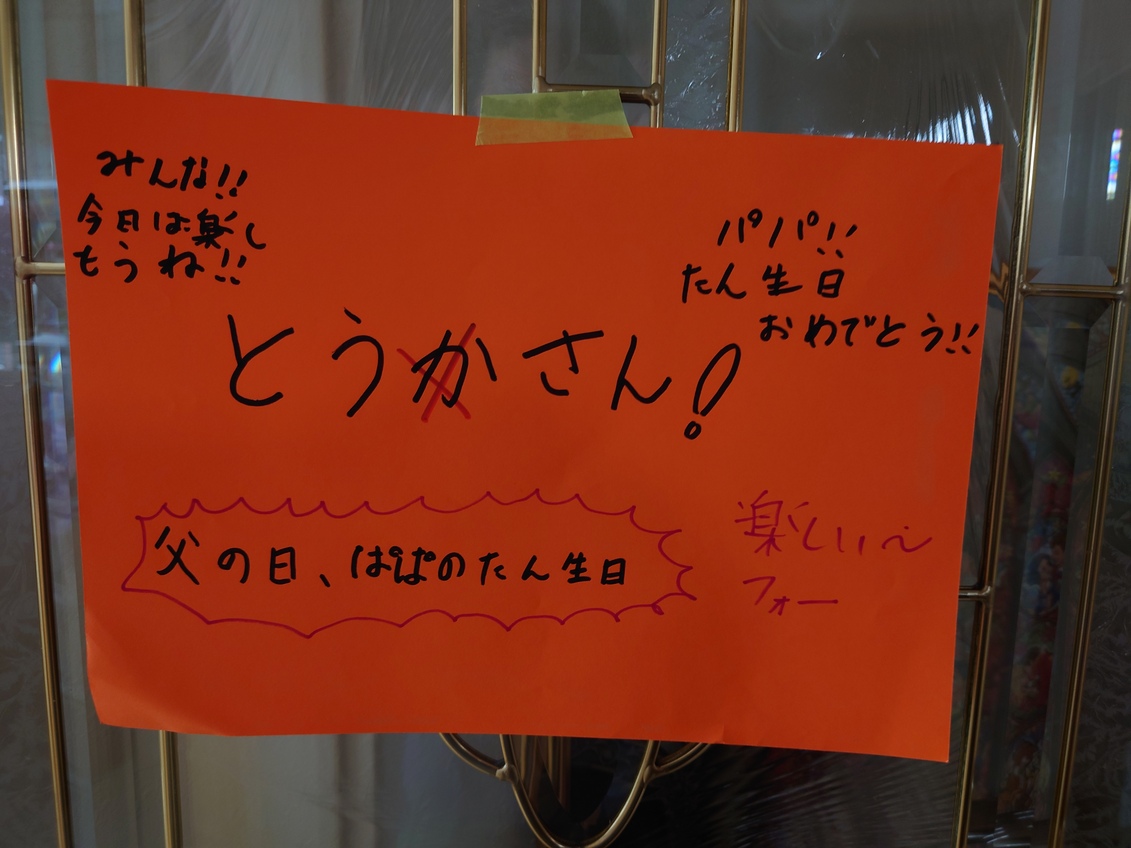 みんな!!
今日は楽し
もうね!!
パパ!!
たん生日
おめでとう!!
とうかさん!
父の日、ぱぱのたん生日
楽しい〜
フォー